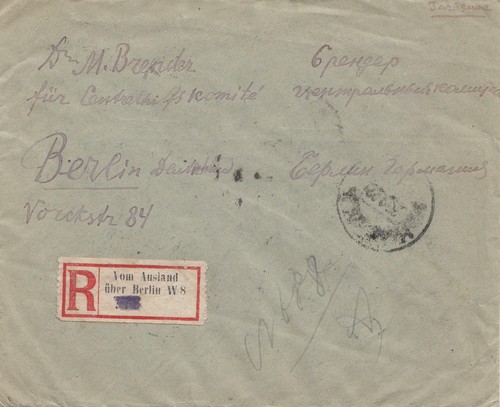 Dr M. Brender
für Centralhilfskomité
Berlin
Yorckstr 84
Брендер
центральный комитет
Берлин Германия
R
Vom Ausland
über Berlin W 8
№ 688